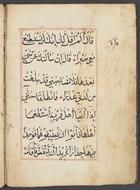 قَالَ أَلَمْ أَقُل لَّكَ إِنَّكَ لَن تَسْتَطِيعَ
مَعِيَ صَبْرًا قَالَ إِن سَأَلْتُكَ عَن شَيْءٍ
بَعْدَهَا فَلَا تُصَاحِبْنِي قَدْ بَلَغْتَ
مِن لَّدُنِّي عُذْرًا فَانطَلَقَا حَتَّى
إِذَا أَتَيَا أَهْلَ قَرْيَةٍ اسْتَطْعَمَا
أَهْلَهَا فَأَبَوْا أَن يُضَيِّفُوهُمَا فَوَجَدَا
فِيهَا جِدَارًا يُرِيدُ أَن يَنقَضَّ فَأَقَامَهُ